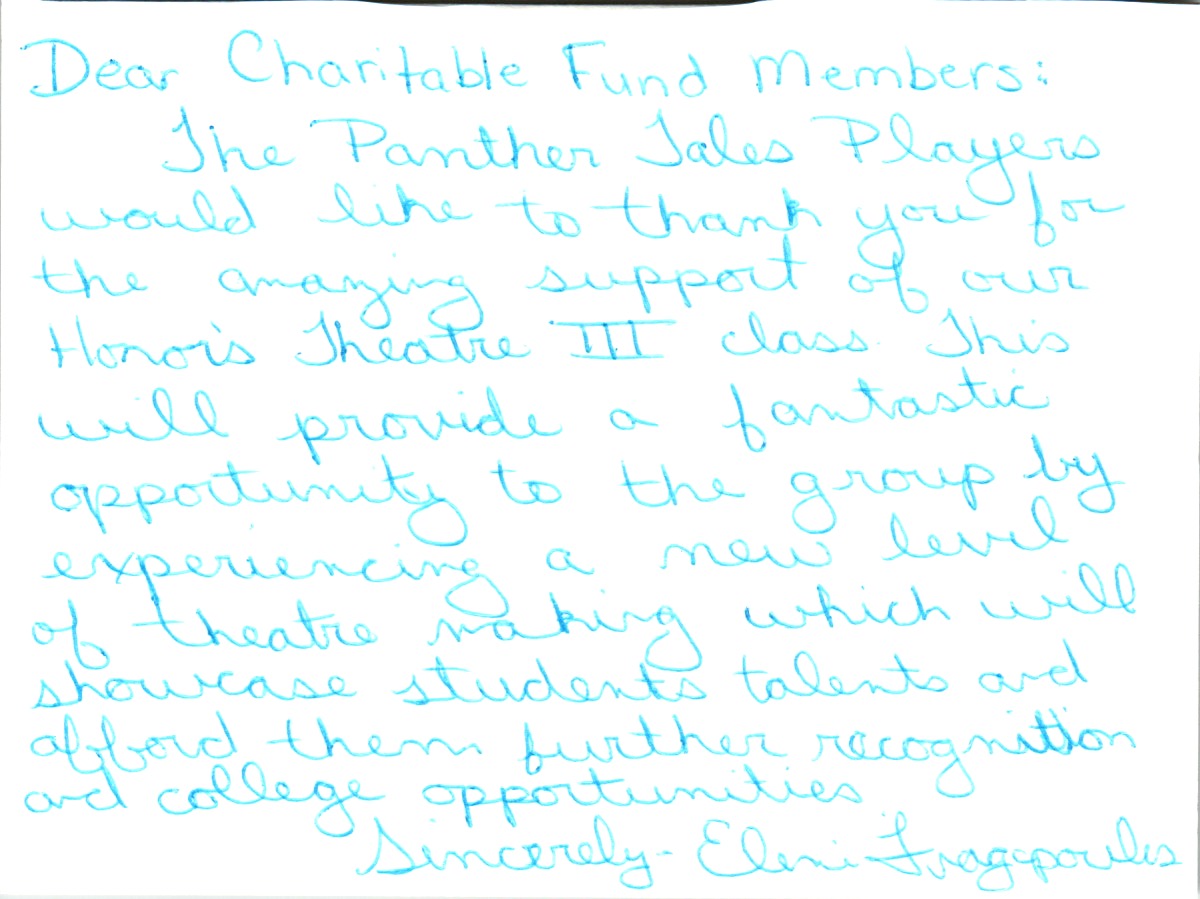 Dear Charitable Fund Members:
The Panther Tales Players
would like to thank you for
the amazing support of our
Honor's Theatre III class. This
will provide a fantastic
opportunity to the group by
experiencing a new level
of theatre making which will
showcase students talents and
afford them further recognition
and college opportunities
Sincerely - Eleni